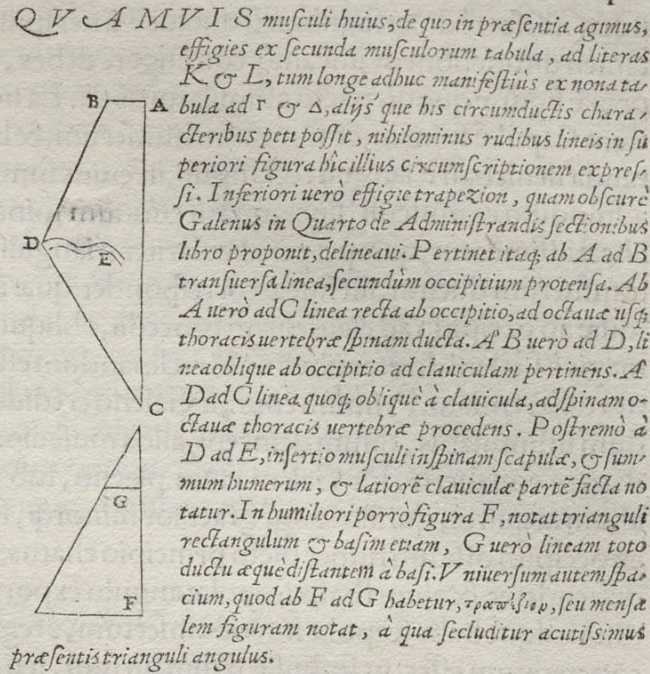 QVAMVIS musculi huius, de quo in præsentia agimus,
effigies ex secunda musculorum tabula, ad literas
K & L, tum longe adhuc manifestiùs ex nona ta-
bula ad Γ & Δ, alijs´que his circumductis chara-
cteribus peti possit, nihilominus rudibus lineis in su
periori figura hîc illius circumscriptionem expres-
si. Inferiori uerò effigie trapezion, quam obscurè
Galenus in Quarto de Administrandis sectionibus
libro proponit, delineaui. Pertinet itaq; ab A ad B
transuersa linea, secundùm occipitium protensa. Ab
A uerò ad C linea recta ab occipitio, ad octauæ usq;
thoracis uertebræ spinam ducta. A´ B uerò ad D, li
nea oblique ab occipitio ad clauiculam pertinens. A´
D ad C linea quoq; obliquè à clauicula, ad spinam o-
ctauæ thoracis uertebræ procedens. Postremò à
D ad E, insertio musculi in spinam scapulæ, & sum-
mum humerum, & latiorē clauiculæ partē facta no
tatur. In humiliori porrò figura F, notat trianguli
rectangulum & basim etiam, G uerò lineam toto
ductu æquè distantem à basi. Vniuersum autem spa-
cium, quod ab F ad G habetur, τραπέζιον, seu mensæ
lem figuram notat, à qua secluditur acutissimus
præsentis trianguli angulus.
B A
D
E
C
G
F